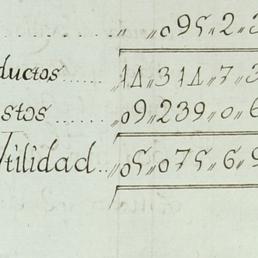 " "095"2"3
ductos ...... 14"314"7"3
stos ..... "09"239"0"6
tilidad .. "05"075"6"9